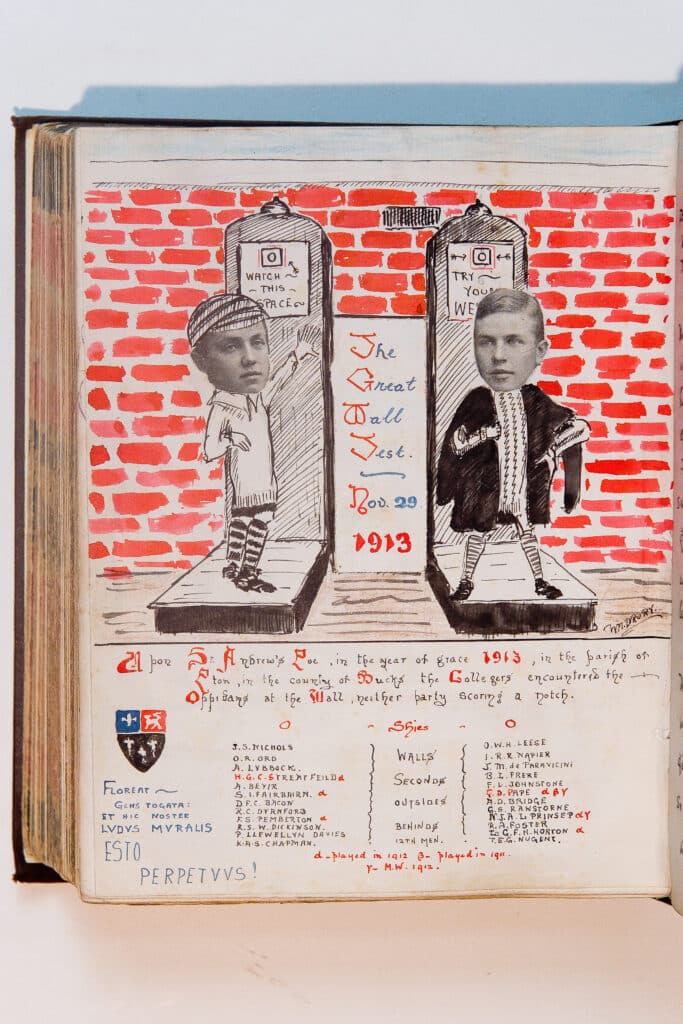 WATCH
THIS
SPACE
TRY
YOUR
WE
The
Great
Wall
Test.
Nov. 29
1913
W.N. DRURY.
Upon St Andrew's Eve, in the year of grace 1913, in the parish of
Eton, in the county of Bucks the Collegers encountered the
Oppidans at the Wall, neither party scoring a notch.
O - Shies - O
J.S. NICHOLS
O.R. ORD
A. LUBBOCK.
H.G.C. STREATFEILD α
A. BEYIR
S.I. FAIRBAIRN. α
D.F.C. BACON
R.C. DYANFORD
F.S. PEMBERTON α
R.S.W. DICKINSON.
P. LLEWELLYN DAVIES
K.A.S. CHAPMAN.
WALLS
SECONDS
OUTSIDES
BEHINDS
12TH MEN.
O.W.H. LEESE
I.R.R. NAPIER
J.M. de PARAVICINI
B.L. FRERE
F.L. JOHNSTONE
G.D. PAPE α β γ
A.D. BRIDGE
G.S. RAWSTORNE
N.S.A.L. PRINSEP α γ
R.A. FOSTER
G.F.H. HORTON α
T.E.G. NUGENT.
α - played in 1912 β - played in 1911.
γ - M.W. 1912.
FLOREAT
GENS TOGATA:
ET HIC NOSTER
LVDVS MVRALIS
ESTO
PERPETVVS!